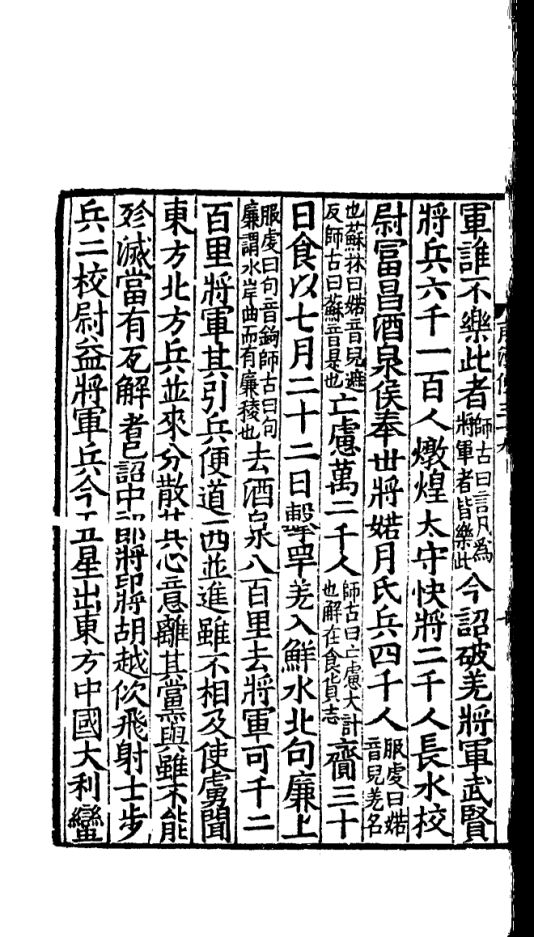 軍誰不樂此者師古曰言凡為將軍者皆樂此今詔破羌將軍武賢
將兵六千一百人燉煌太守快將二千人長水校
尉冨昌酒泉侯奉世將婼月氏兵四千人服虔曰婼音兒羌名
也蘇林曰婼音兒遮反師古曰蘇音是也亡慮萬二千人師古曰亡慮大計也解在食貨志齎三十
日食以七月二十二日擊罕羌入鮮水北句廉上
服虔曰句音鉤師古曰句廉謂水岸曲而有廉稜也去酒泉八百里去將軍可千二
百里將軍其引兵便道西並進雖不相及使虜聞
東方北方兵並來分散其心意離其黨與雖不能
殄滅當有瓦解者已詔中郎將卬將胡越佽飛射士步
兵二校尉益將軍兵今五星出東方中國大利蠻